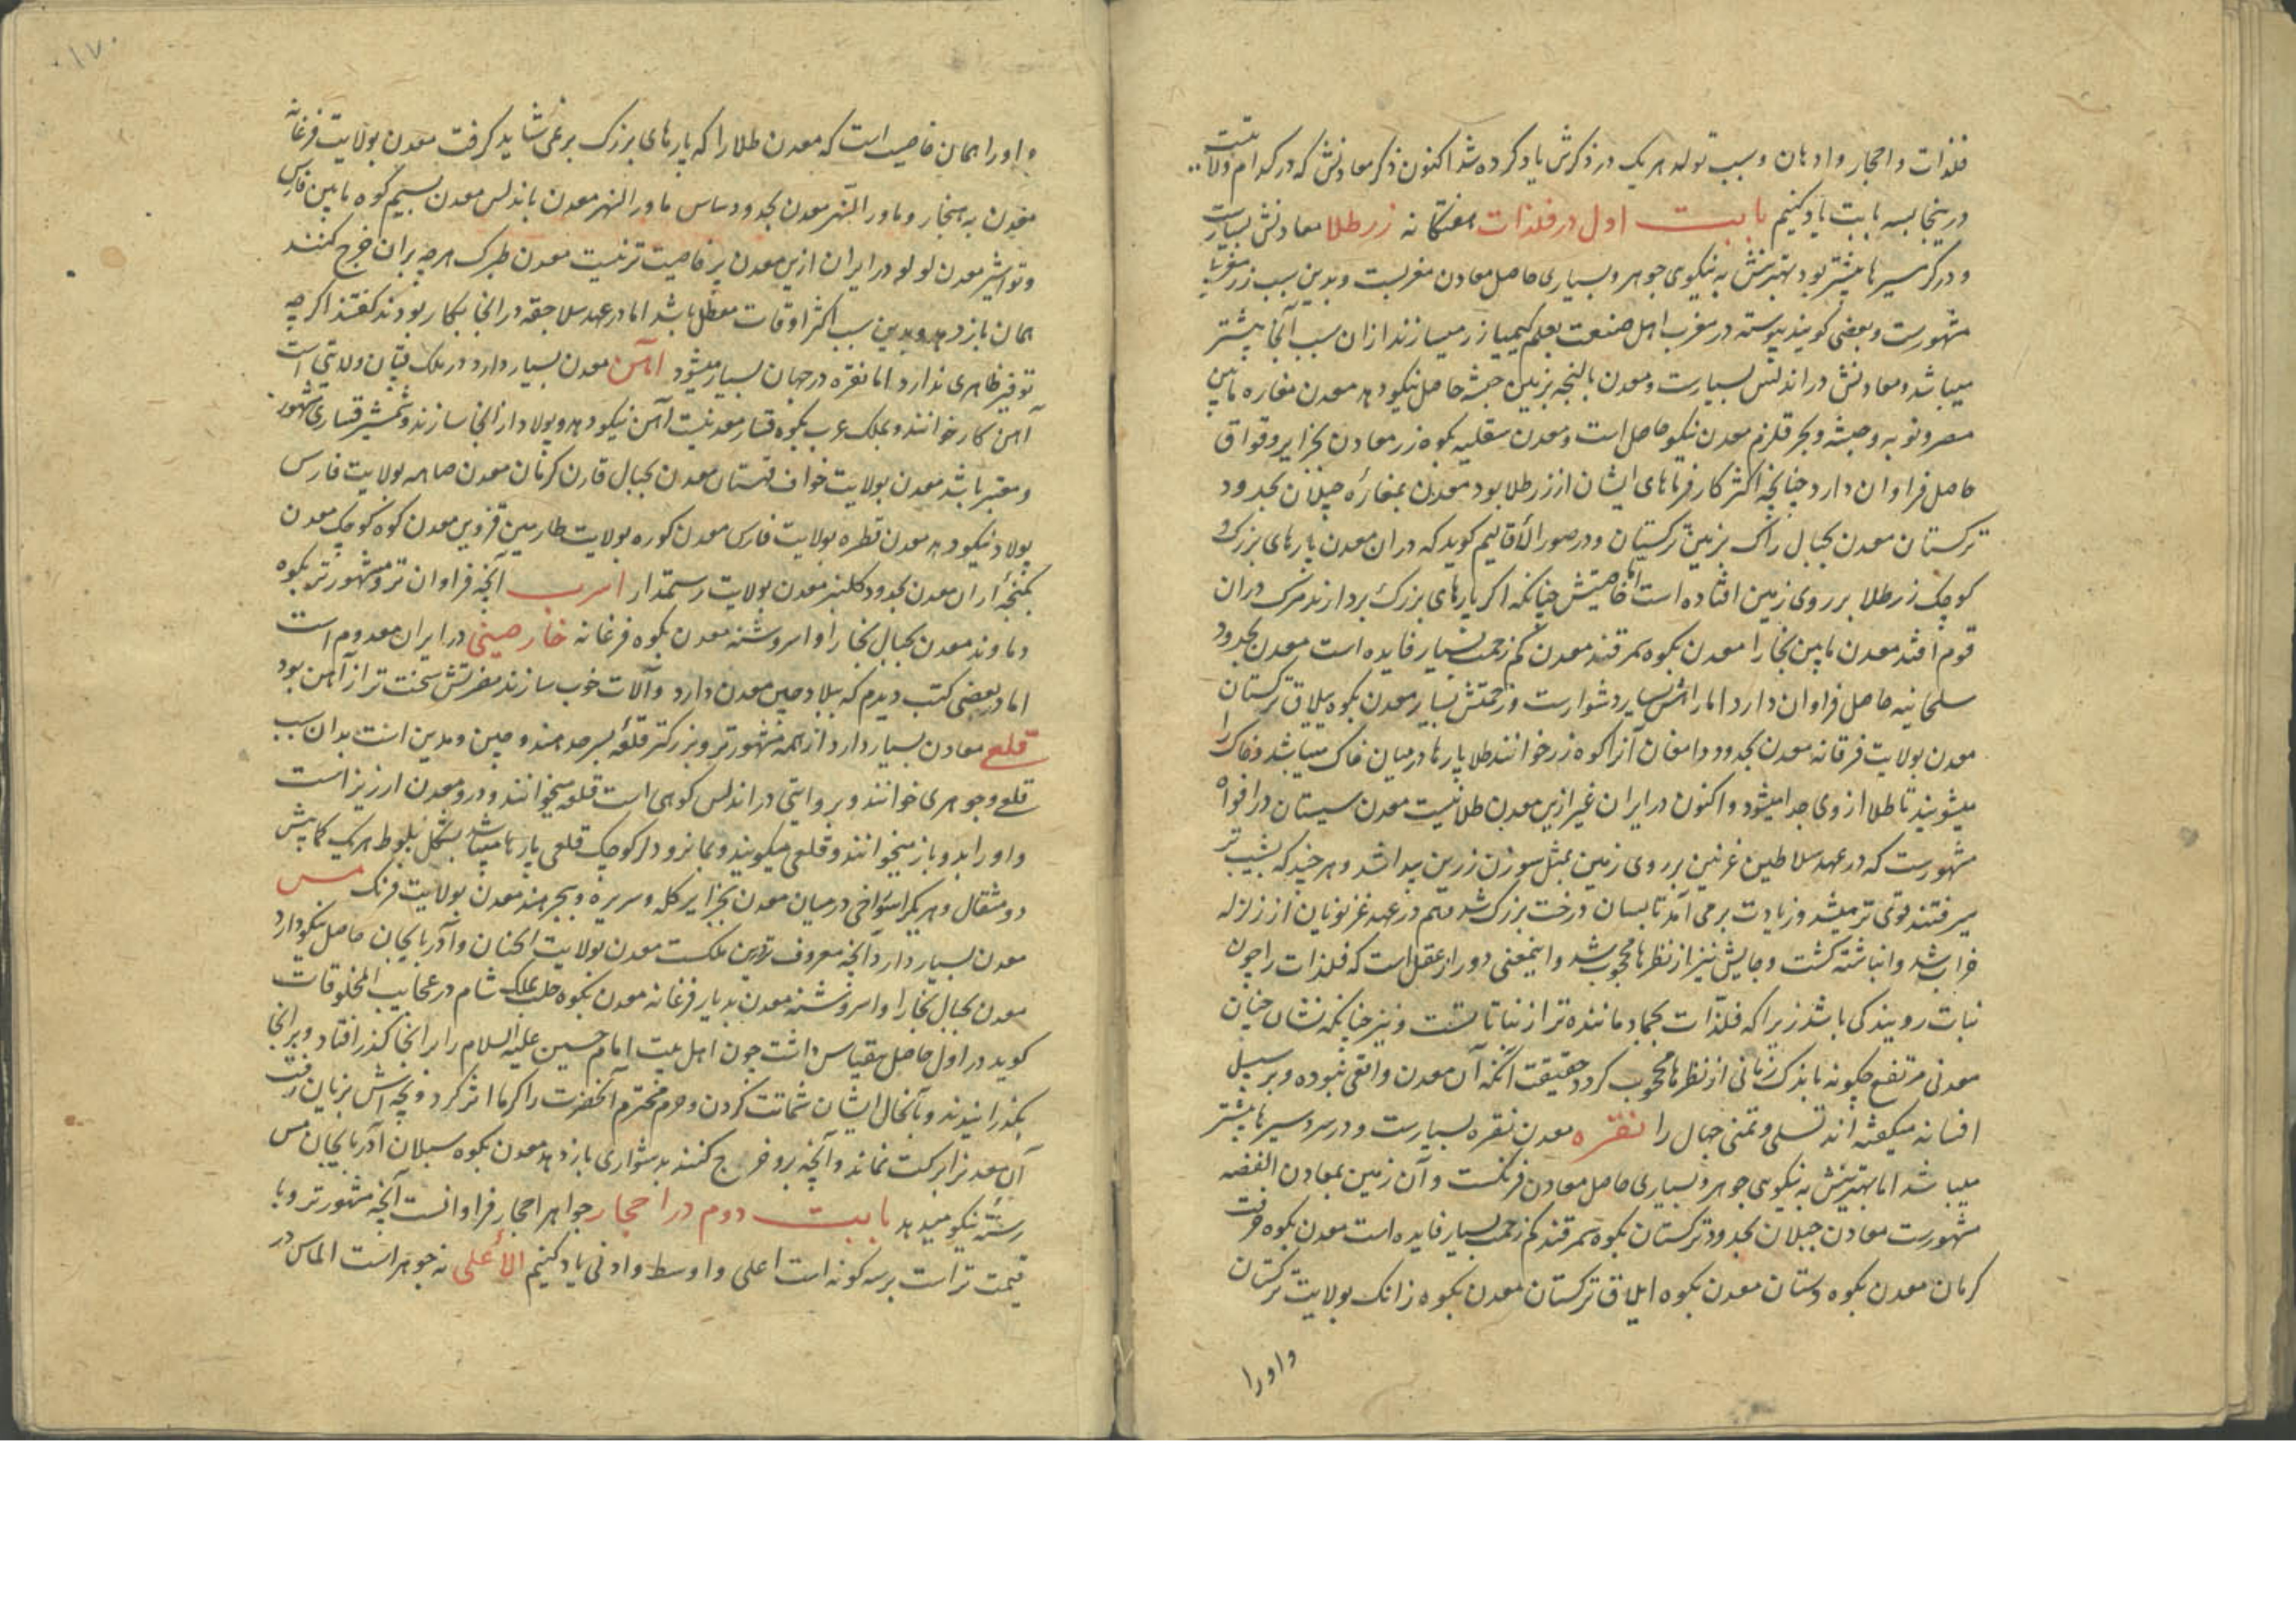 فلزات و احجار و ادهان و سبب تولد هر یک در ذکرش یاد کرده شد اکنون ذکر معادنش که در کدام ولایتست
در ینجا بسه بابت یاد کنیم بابت اول در فلزات هفتکانه زر طلا معادنش بسیارست
و در گرمسیرها بیشتر بود بهترینش به نیکوی جوهر و بسیاری حاصل معادن مغربست و بدین سبب زر مغربی
مشهورست و بعضی کویند پیوسته در مغرب اهل صنعت بعلم کیمیا زر میسازند از ان سبب آنجا بیشتر
میباشد و معادنش در اندلس بسیارست و معدن بالنجه بزمین حبشه حاصل نیکو دهد معدن مغاره مابین
مصر و نوبه و حبشه و بحر قلزم معدن نیکو حاصل است و معدن سقلیه بکوه زر معادن بجزایر وقواق
حاصل فراوان دارد چنانچه اکثر کارفرماهای ایشان از زر طلا بود معدن بمغاره جیلان بحدود
ترکستان معدن بجبال راک بزمین ترکستان و در صور الاقالیم کوید که در ان معدن پارهای بزرک و
کوچک زر طلا بر روی زمین افتاده است اما خاصیتش چنانکه اکر پارهای بزرک بردارند مرک در ان
قوم افتد معدن مابین بخارا معدن بکوه سمرقند معدن کم زحمت بسیار فایده است معدن بحدود
سلحانیه حاصل فراوان دارد اما راهش بسیار دشوارست و زحمتش بسیار معدن بکوه ییلاق ترکستان
معدن بولایت فرقانه معدن بحدود دامغان آنرا کوه زر خوانند طلا پارها در میان خاک میباشد و خاک را
میشویند تا طلا از وی جدا میشود و اکنون در ایران غیر ازین معدن طلا نیست معدن سیستان در افواه
مشهورست که در عهد سلاطین غزنین بر روی زمین بمثل سوزن زرین پیدا شد و هر چند که بشیب تر
میرفتند قوی تر میشد و زیادت برمی آمد تا بسان درخت بزرک شد هم در عهد غزنویان از زلزله
خراب شد و انباشته کشت و جایش نیز از نظرها محجوب شد و اینمعنی دور از عقل است که فلزات را چون
نبات رویندکی باشد زیرا که فلزات بجماد ماننده تر از نباتاتست و نیز چنانکه نشان چنان
معدنی مرتفع چکونه باندک زمانی از نظرها محجوب کردد حقیقت آنکه آن معدن واقعی نبوده و بر سبیل
افسانه میکفته اند تسلی و تمنی جهال را نقره معدن نقره بسیارست و در سردسیرها بیشتر
میباشد اما بهترینش به نیکویی جوهر و بسیاری حاصل معادن فرنکست و آن زمین بمعادن الفضه
مشهورست معادن جیلان بحدود ترکستان بکوه سمرقند کم زحمت بسیار فایده است معدن بکوه جرفت
کرمان معدن بکوه دستان معدن بکوه ایلاق ترکستان معدن بکوه زانک بولایت ترکستان
و او را
و او را همان خاصیت است که معدن طلا را که پارهای بزرک برنمی شاید کرفت معدن بولایت فرغانه
معدن به سنجار و ماورا النهر معدن بحدود ساس ماورالنهر معدن باندلس معدن بسیم کوه مابین فارس
و تواشیر معدن لولو در ایران ازین معدن پر خاصیت تر نیست معدن طبرک هر چه بران خرج کنند
همان باز دهد و بدین سبب اکثر اوقات معطل باشد اما در عهد سلاجقه در انجا بکار بودند کفتند اکر چه
توفیر ظاهری ندارد اما نقره در جهان بسیار میشود آهن معدن بسیار دارد در ملک ولایتی است
آهن کار خوانند و بملک عرب بکوه قسار معدنیست آهن نیکو دهد و پولاد از انجا سازند و شمشیر قساری مشهور
و معتبر باشد معدن بولایت خواف قهستان معدن بجبال قارن کرمان معدن صاهه بولایت فارس
پولاد نیکو دهد معدن قطره بولایت فارس معدن کوره بولایت طارمین قزوین معدن کوه کوچک معدن
بکنجه آران معدن بحدود کلنبر معدن بولایت رستمدار اسرب آنچه فراوان تر و مشهورتر بکوه
دماوند معدن بجبال بخارا و اسروشنه معدن بکوه فرغانه خارصینی در ایران معدوم است
اما در بعضی کتب دیدم که ببلاد چین معدن دارد و آلات خوب سازند مضرتش سخت تر از آهن بود
قلع معادن بسیار دارد از همه مشهورتر و بزرکتر قلعه بسرحد هند و چین و بدین است بدان سبب
قلعی و جوهری خوانند و بروایتی در اندلس کوهی است قلعه میخوانند و درو معدن ارزیز است
و او را بدو باز میخوانند و قلعی میکویند کوچک قلعی پارها میباشد بشکل بلوط هر یک کمابیش
دو مثقال و هر یکرا سوراخی در میان معدن بجزایر کله و سریره و ببحر هند معدن بولایت فرنک مس
معدن بسیار دارد آنچه معروف ترین ملکست معدن بولایت الخان و آذربایجان حاصل نیکو دارد
معدن بجبال بخارا و اسروشنه معدن بدیار فرغانه معدن بکوه حلب بملک شام در عجایب المخلوقات
کوید در اول حاصل بیقیاس داشت چون اهل بیت امام حسین علیه السلام را بر انجا کذر افتاد و برانجا
بکذرانیدند و بانحال ایشان شماتت کردن و حرم محترم آنحضرت را کرما اثر کرد و بچه اش بزیان رفت
آن معدن را برکت نماند و آنچه برو خرج کنند بدشواری باز دهد معدن بکوه سبلان آذربایجان مس
رسته نیکو میدهد بابت دوم در احجار جواهر احجار فراوانست آنچه مشهورتر و با
قیمت تر است بر سه کونه است اعلی و اوسط و ادنی یاد کنیم الاعلی نه جوهر است الماس در